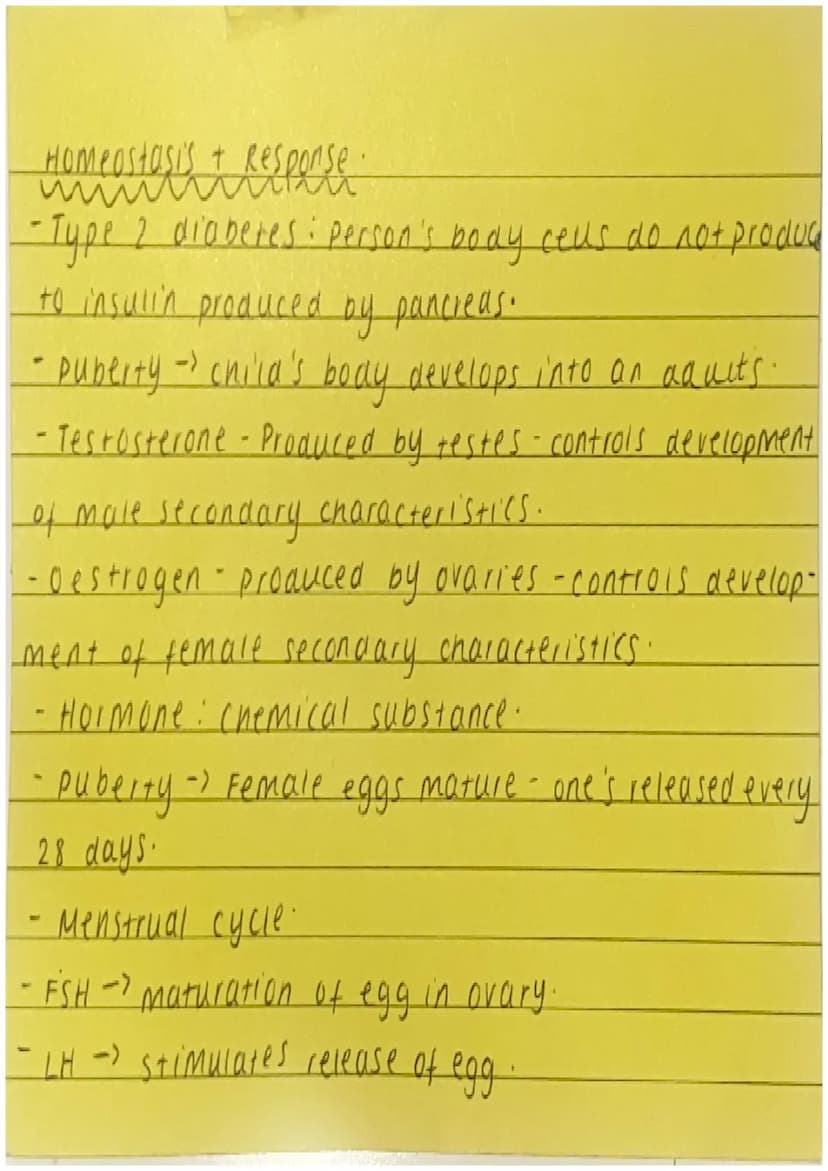 Homeostasis + Response.
- Type 2 diabetes : person's body cells do not produc
to insulin produced by pancreas.
- Puberty -> child's body develops into an adults.
- Testosterone - Produced by testes - controls development
of male secondary characteristics.
- Oestrogen - produced by ovaries - controls develop-
ment of female secondary characteristics.
- Hormone : chemical substance.
- Puberty -> Female eggs mature - one's released every
28 days.
- Menstrual cycle.
- FSH -> maturation of egg in ovary.
- LH -> stimulates release of egg.